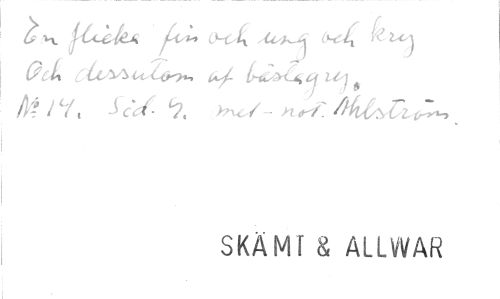 En flicka fin och ung och kry
Och dessutom af bästa gry.
No 14. Sid. 9. met-not. Ahlström.
SKÄMT & ALLWAR